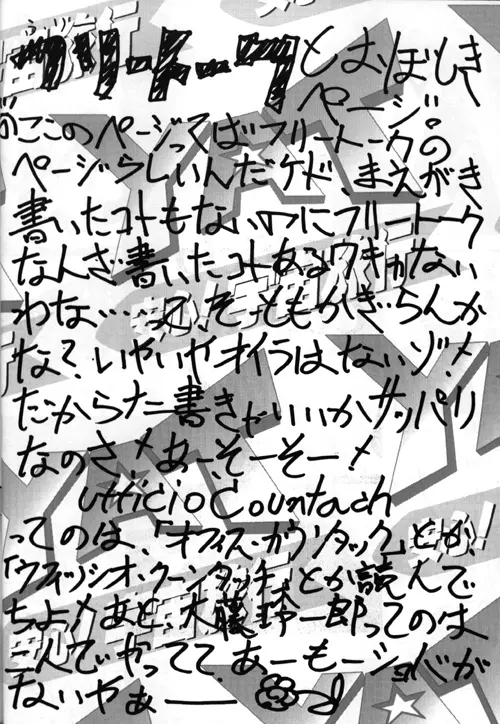 フリートークとおぼしき
ページ!
このページってばフリートークの
ページらしいんだケド、まえがき
書いたコトもないのにフリートーク
なんざ書いたコトあるワキがない
わな…って、そーともかぎらんか
な?いやいやオイラはないゾ!
だからナニ書きゃいいかサッパリ
なのさ!あ、そーそー!
Ufficio Countach
ってのは、「オフィス・カウンタック」とか
「ウフィッシオ・クーンタッチ」とか読んで
ちょ!あと、大藤玲一郎ってのは
二人でやってて、あーもーショバが
ないやぁ——